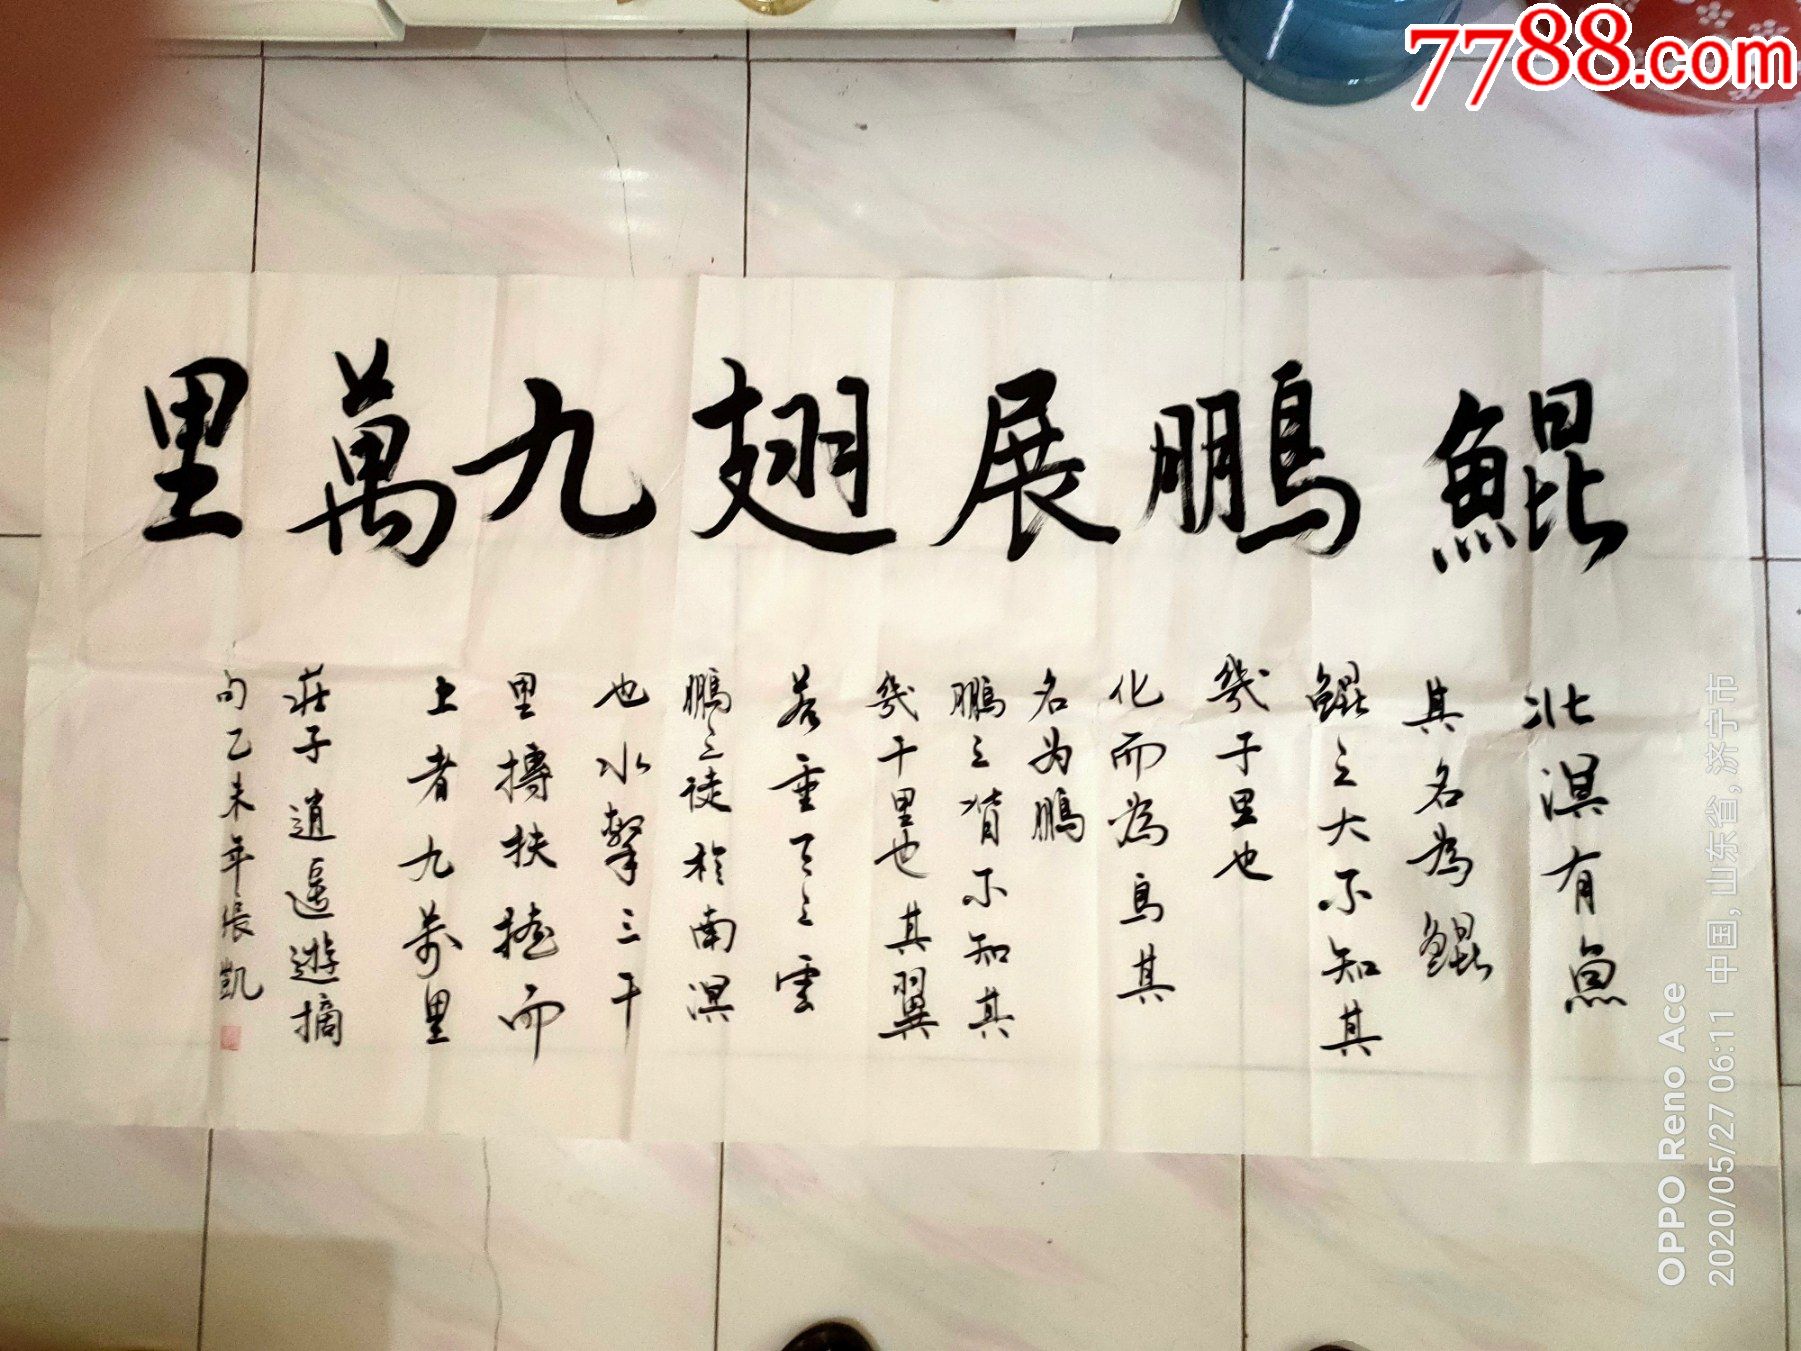 鯤鵬展翅九萬里
北溟有魚
其名為鯤
鯤之大不知其
幾千里也
化而為鳥其
名为鵬
鵬之背不知其
幾千里也其翼
若垂天之雲
鵬之徒於南溟
也水擊三千
里摶扶搖而
上者九萬里
莊子逍遥遊摘
句乙未年張凱
7788.com
OPPO Reno Ace
2020/05/27 06:11 中国,山东省,济宁市